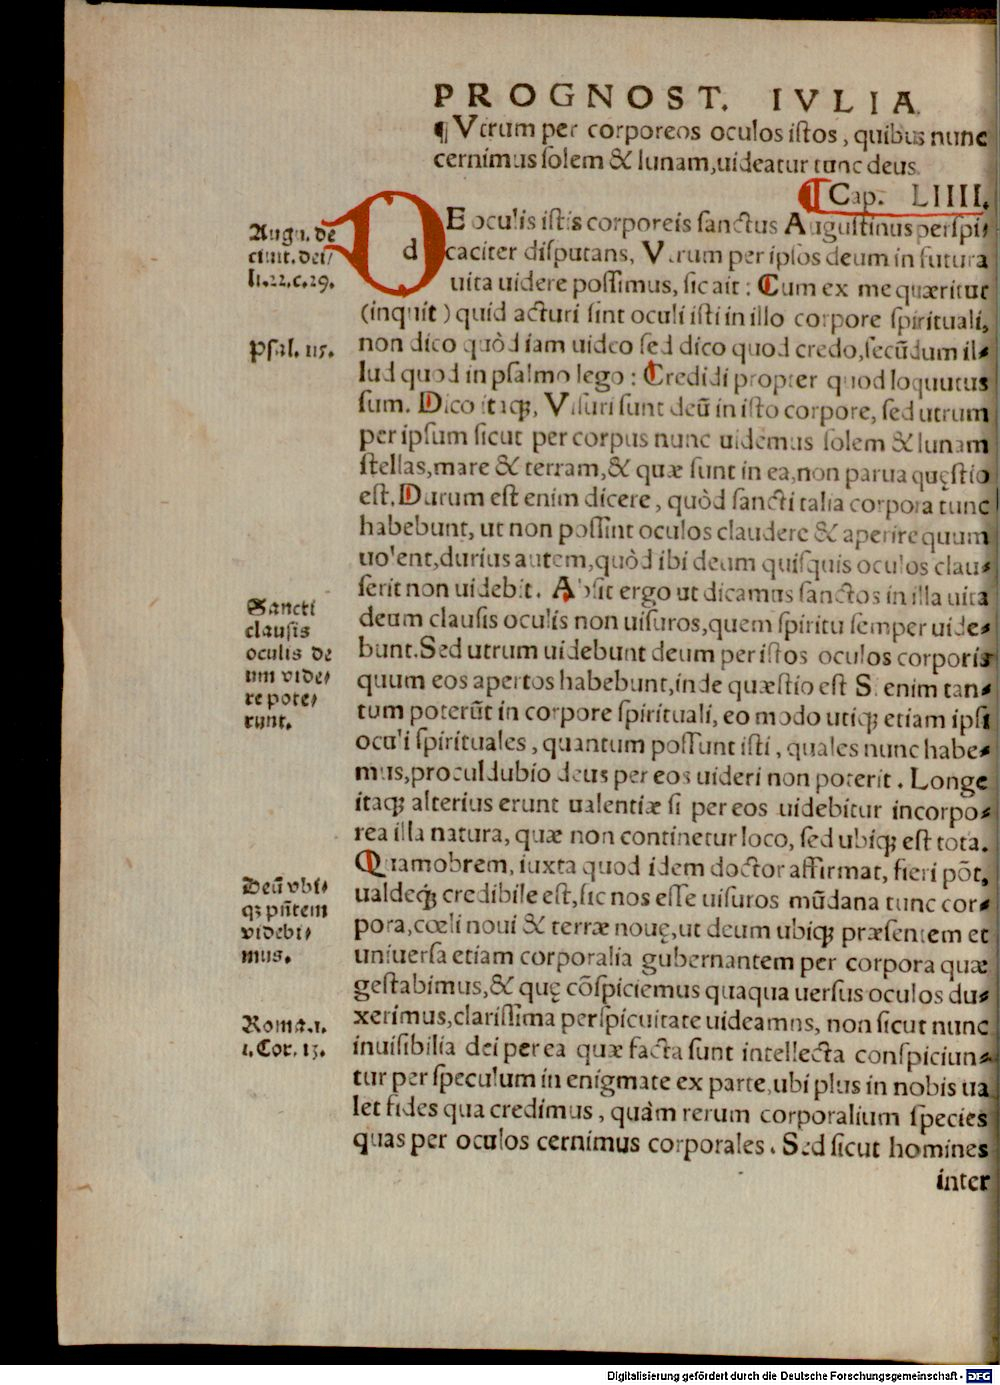 PROGNOST. IVLIA
¶ Vtrum per corporeos oculos iſtos, quibus nunc
cernimus ſolem & lunam, uideatur tunc deus.
¶Cap. LIIII.
DE oculis iſtis corporeis ſanctus Auguſtinus perſpi-
caciter diſputans, Vtrum per ipſos deum in futura
uita uidere poſſimus, ſic ait: Cum ex me quæritur
(inquit) quid acturi ſint oculi iſti in illo corpore ſpirituali,
non dico quòd iam uideo ſed dico quod credo, ſecūdum il-
lud quod in pſalmo lego: Credidi propter quod loquutus
ſum. Dico itaq;, Viſuri ſunt deū in iſto corpore, ſed utrum
per ipſum ſicut per corpus nunc uidemus ſolem & lunam
ſtellas, mare & terram, & quæ ſunt in ea, non parua quęſtio
eſt. Durum eſt enim dicere, quòd ſancti talia corpora tunc
habebunt, ut non poſſint oculos claudere & aperire quum
uolent, durius autem, quòd ibi deum quiſquis oculos clau-
ſerit non uidebit. Abſit ergo ut dicamus ſanctos in illa uita
deum clauſis oculis non uiſuros, quem ſpiritu ſemper uide-
bunt. Sed utrum uidebunt deum per iſtos oculos corporis
quum eos apertos habebunt, inde quæſtio eſt Si enim tan-
tum poterūt in corpore ſpirituali, eo modo utiq; etiam ipſi
oculi ſpirituales, quantum poſſunt iſti, quales nunc habe-
mus, proculdubio deus per eos uideri non poterit. Longe
itaq; alterius erunt ualentiæ ſi per eos uidebitur incorpo-
rea illa natura, quæ non continetur loco, ſed ubiq; eſt tota.
Quamobrem, iuxta quod idem doctor affirmat, fieri pōt,
ualdeq; credibile eſt, ſic nos eſſe uiſuros mūdana tunc cor-
pora, cœli noui & terræ nouę, ut deum ubiq; præſentem et
uniuerſa etiam corporalia gubernantem per corpora quæ
geſtabimus, & quę cōſpiciemus quaqua uerſus oculos du-
xerimus, clariſſima perſpicuitate uideamns, non ſicut nunc
inuiſibilia dei per ea quæ facta ſunt intellecta conſpiciun-
tur per ſpeculum in enigmate ex parte, ubi plus in nobis ua
let fides qua credimus, quàm rerum corporalium ſpecies
quas per oculos cernimus corporales. Sed ſicut homines
inter
Augu. de
ciuit. dei/
li.22.c.29.
Pſal. 115.
Sancti
clauſis
oculis de
um vide/
re pote/
runt.
Deū vbi/
q; pn̄tem
videbi/
mus.
Roma.1.
1.Cor. 13.
Digitalisierung gefördert durch die Deutsche Forschungsgemeinschaft - DFG